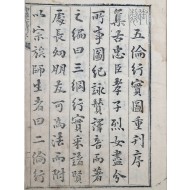 五倫行實圖重刊序
集古忠臣孝子烈女盡分
所事圖紀詠贊譯音而著
之編曰三綱行實采諸善
處長幼朋友可爲法而附
以宗族師生者曰二倫行